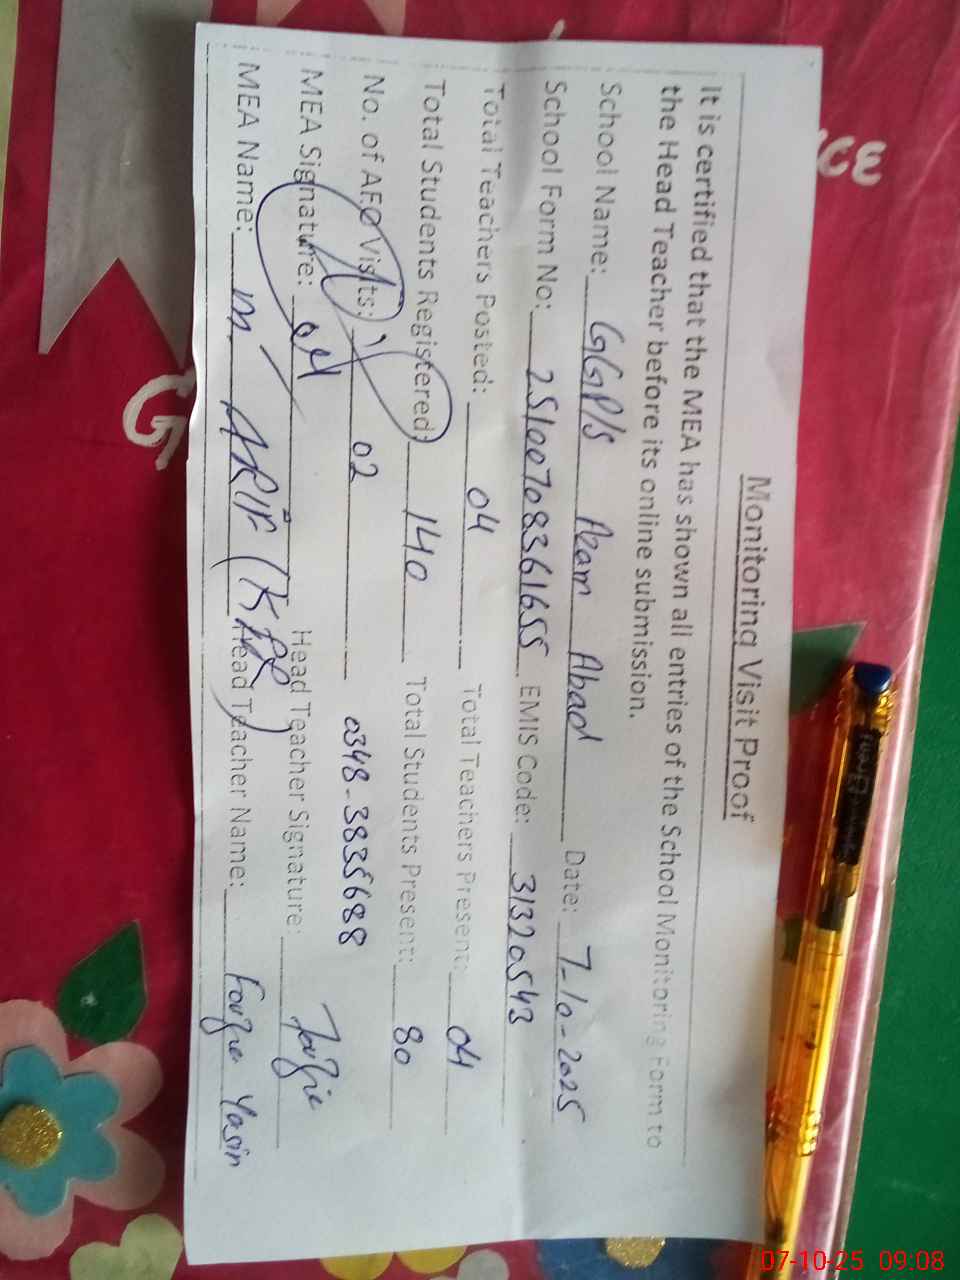 Monitoring Visit Proof
It is certified that the MEA has shown all entries of the School Monitoring Form to
the Head Teacher before its online submission.
School Name: GGP/S Azam Abad Date: 7-10-2025
School Form No: 25100708361655 EMIS Code: 31320543
Total Teachers Posted: 04 Total Teachers Present: 04
Total Students Registered: 140 Total Students Present: 80
No. of AEO Visits: 02 0348-3835688
MEA Signature: Head Teacher Signature: Fouzie
MEA Name: M. ARIF Head Teacher Name: Fouzia Yasin
CE
G
07-10-25 09:08